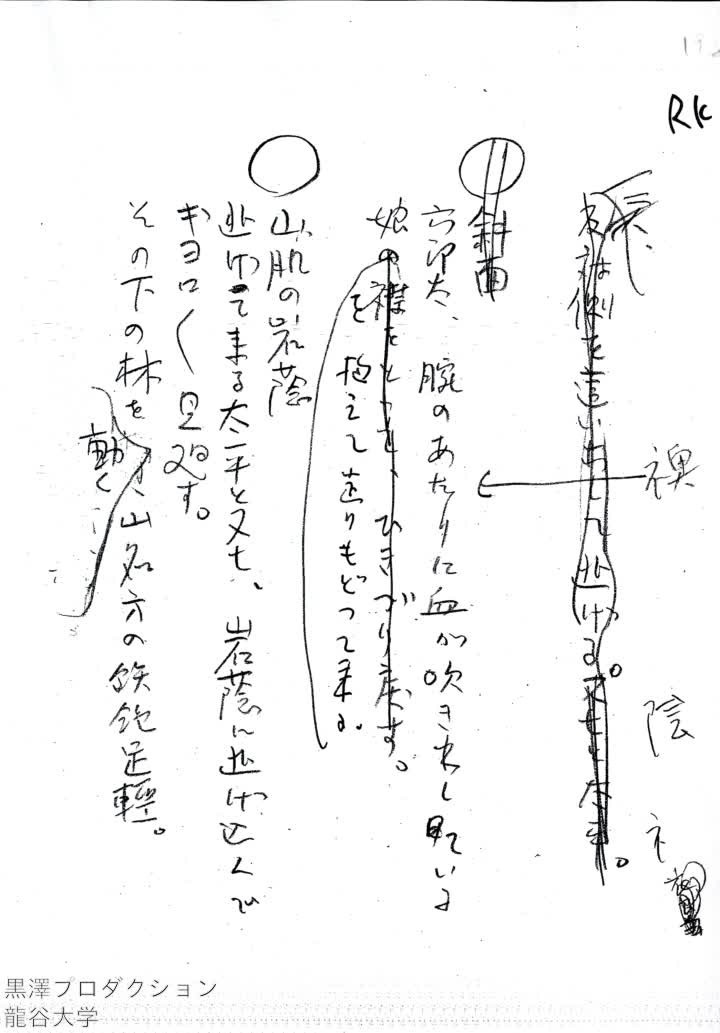 RK
襖
陰
反対側を這い出して逃げる又七と太平。
斜面
六郎太、腕のあたりに血が吹き出し見ている
娘の襟をとって、ひきづり戻す。
を抱えて走りもどって来る。
山肌の岩蔭
逃げて来る太平と又七、岩蔭に逃げ込んで
キョロ〱見廻す。
その下の林を
動く
山名方の鉄砲足軽。
黒澤プロダクション
龍谷大学